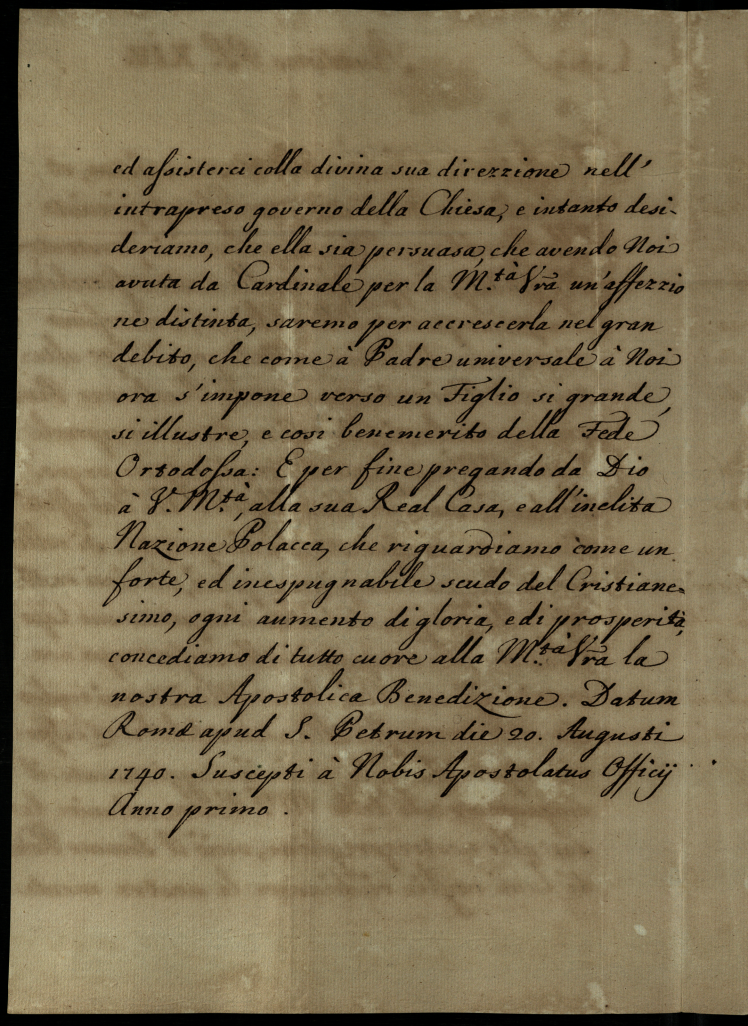 ed assisterci colla divina sua direzzione nell'
intrapreso governo della Chiesa, e intanto desi-
deriamo, che ella sia persuasa, che avendo Noi
avuta da Cardinale per la M.tà Vrā un'affezzio
ne distinta, saremo per accrescerla nel gran
debito, che come à Padre universale à Noi
ora s'impone verso un Figlio si grande,
si illustre, e cosi benemerito della Fede
Ortodossa: E per fine pregando da Dio
à V. M.tà, alla sua Real Casa, e all'inclita
Nazione Polacca, che riguardiamo come un
forte, ed inespugnabile scudo del Cristiane-
simo, ogni aumento di gloria, e di prosperità,
concediamo di tutto cuore alla M.tà Vrā la
nostra Apostolica Benedizione. Datum
Romæ apud S. Petrum die 20. Augusti
1740. Suscepti à Nobis Apostolatus Officij
Anno primo.